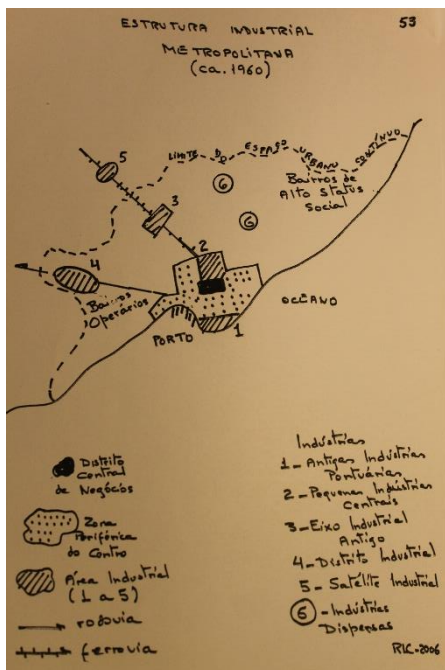 53
ESTRUTURA INDUSTRIAL
METROPOLITANA
(ca. 1960)
LIMITE DO ESPAÇO URBANO CONTÍNUO
Bairros de
Alto Status
Social
5
6
3
6
4
2
Bairros
Operários
OCEANO
PORTO
1
Distrito
Central
de Negócios
Zona
Periférica
do Centro
Área Industrial
(1 a 5)
rodovia
ferrovia
Indústrias
1 - Antigas Indústrias
Portuárias
2 - Pequenas Indústrias
Centrais
3 - Eixo Industrial
Antigo
4 - Distrito Industrial
5 - Satélite Industrial
6 - Indústrias
Dispersas
RLC-2006